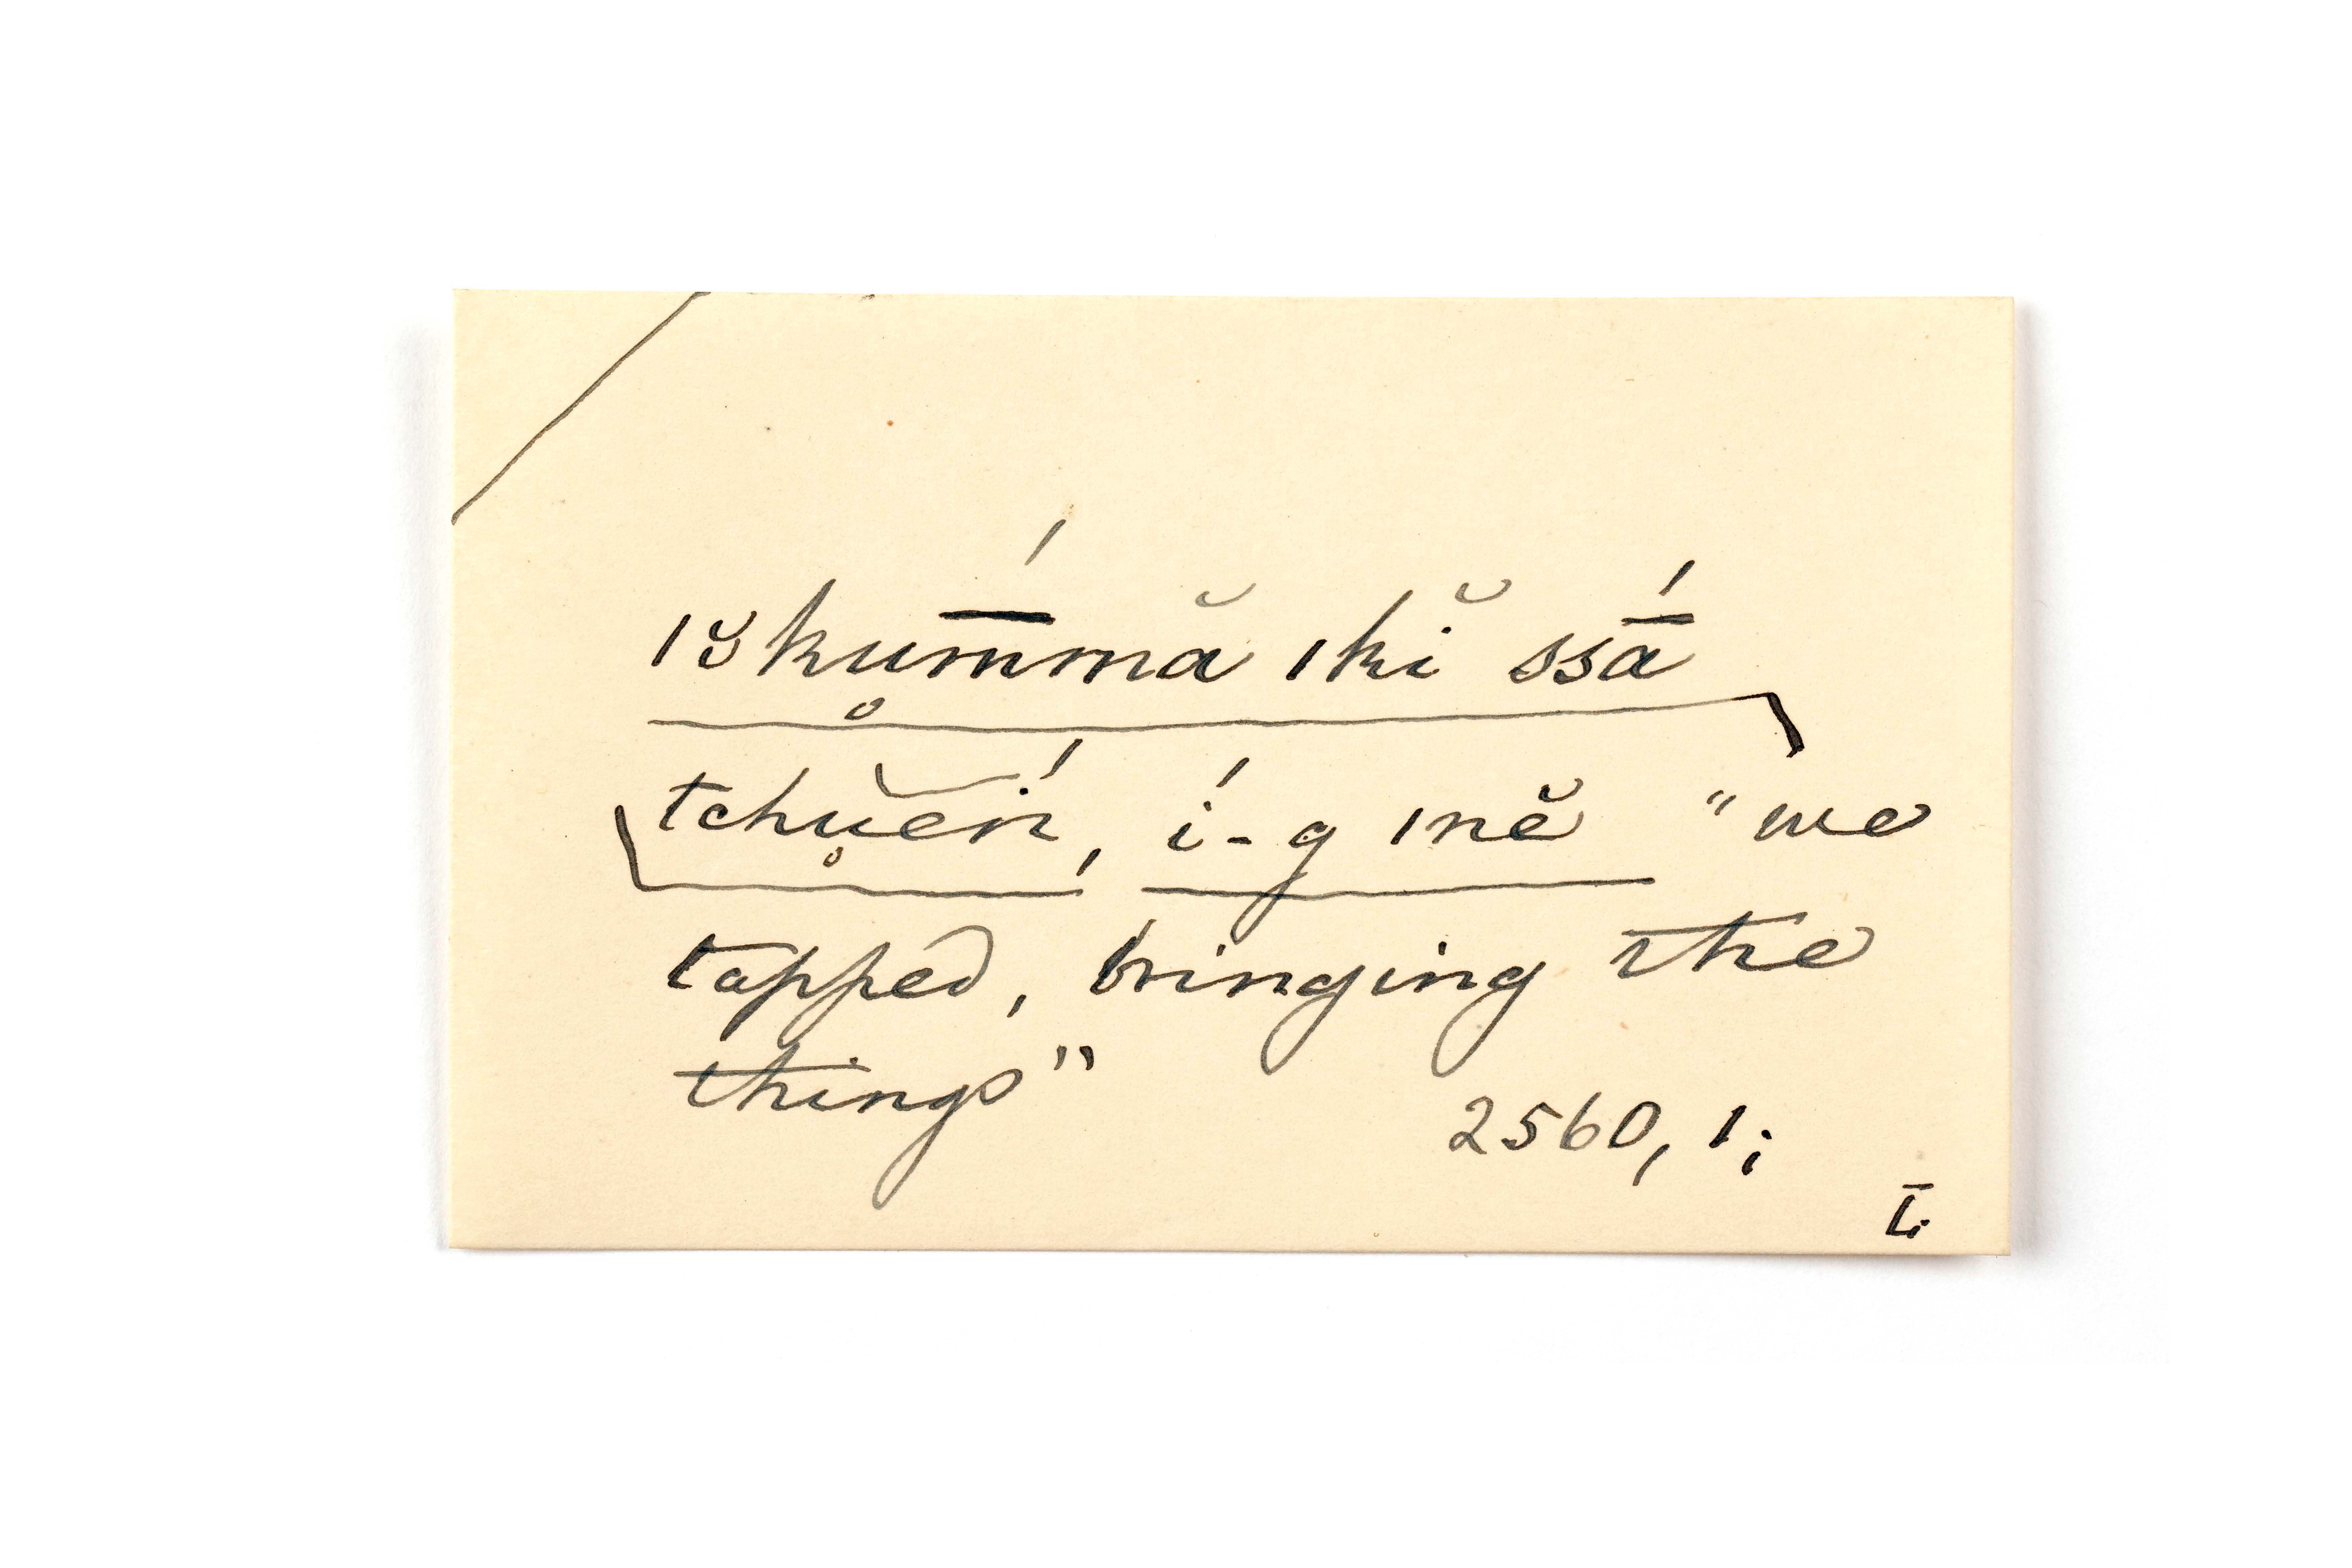 ıɜ̆kụm̄́mă ıkĭ ssā́
tchụĕń, í-g ınĕ "we
tapped, bringing the
things"
2560, 1;
L̄.